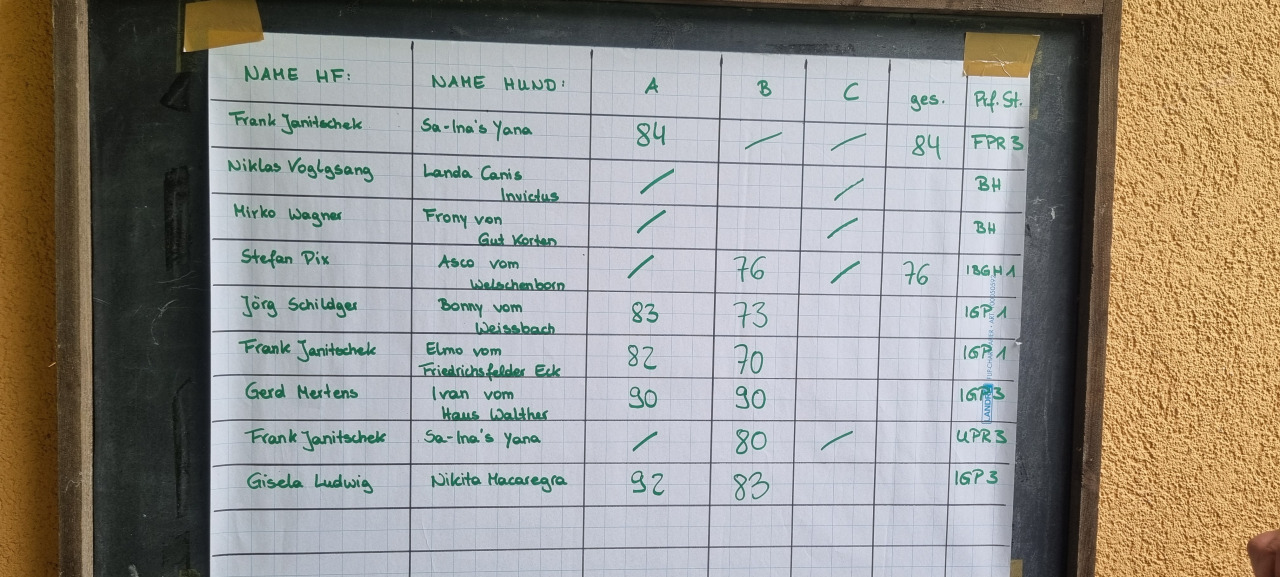 NAME HF: NAME HUND: A B C ges. Prf. St.
Frank Janitschek Sa-Ina's Yana 84 / / 84 FPR 3
Niklas Voglgsang Landa Canis / / BH
Invictus
Mirko Wagner Frony von / / BH
Gut Korten
Stefan Pix Asco vom / 76 / 76 IBGH 1
Welschenborn
Jörg Schildger Bonny vom 83 73 IGP 1
Weissbach
Frank Janitschek Elmo vom 82 70 IGP 1
Friedrichsfelder Eck
Gerd Mertens Ivan vom 90 90 IGP 3
Haus Walther
Frank Janitschek Sa-Ina's Yana / 80 / UPR 3
Gisela Ludwig Nikita Macaregra 92 83 IGP 3
LANDRÉ